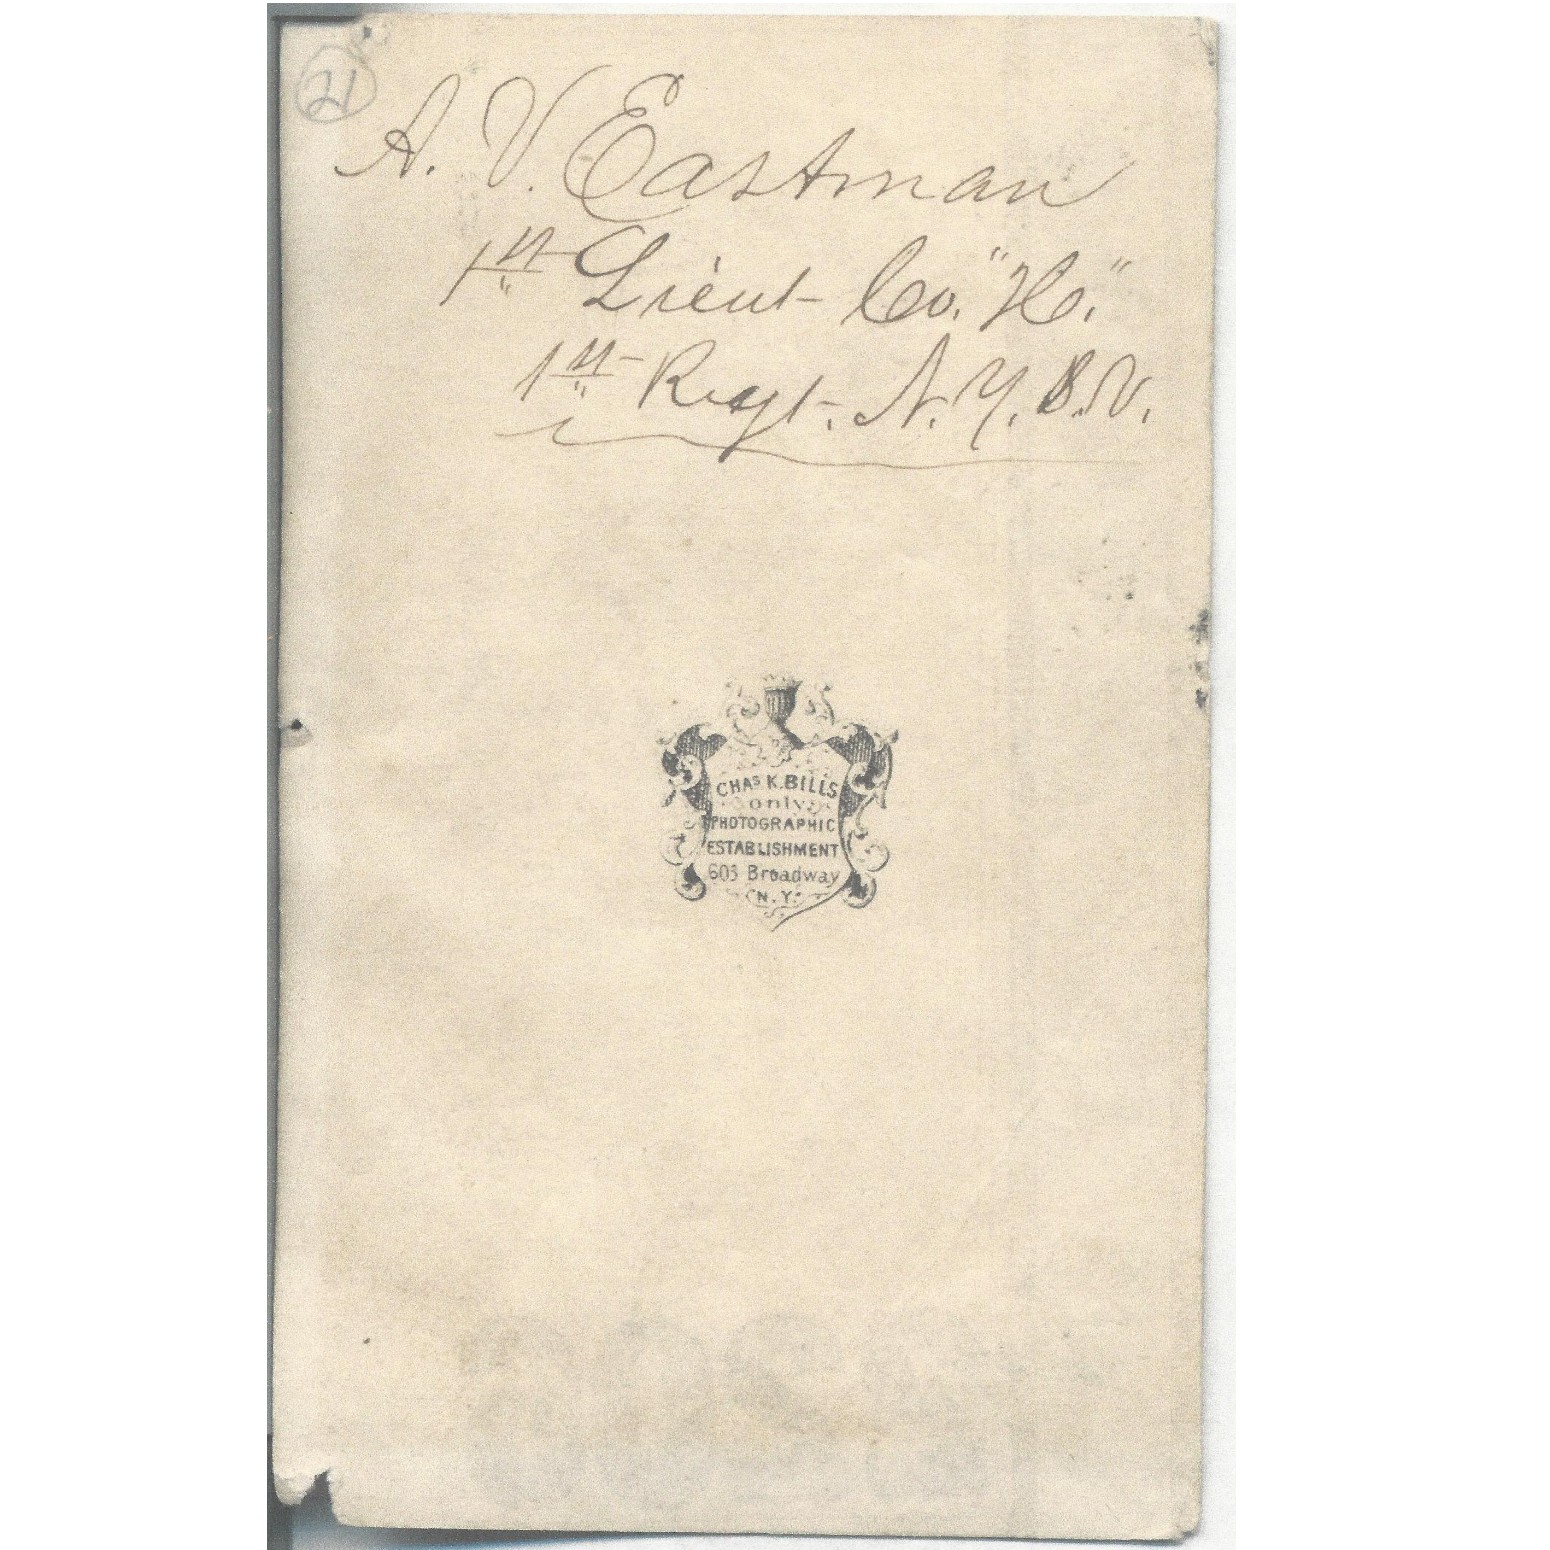 21
A. V. Eastman
1st Lieut- Co. "H."
1st Regt. N. Y. S. V.
CHAS K. BILLS
only
PHOTOGRAPHIC
ESTABLISHMENT
603 Broadway
N. Y.